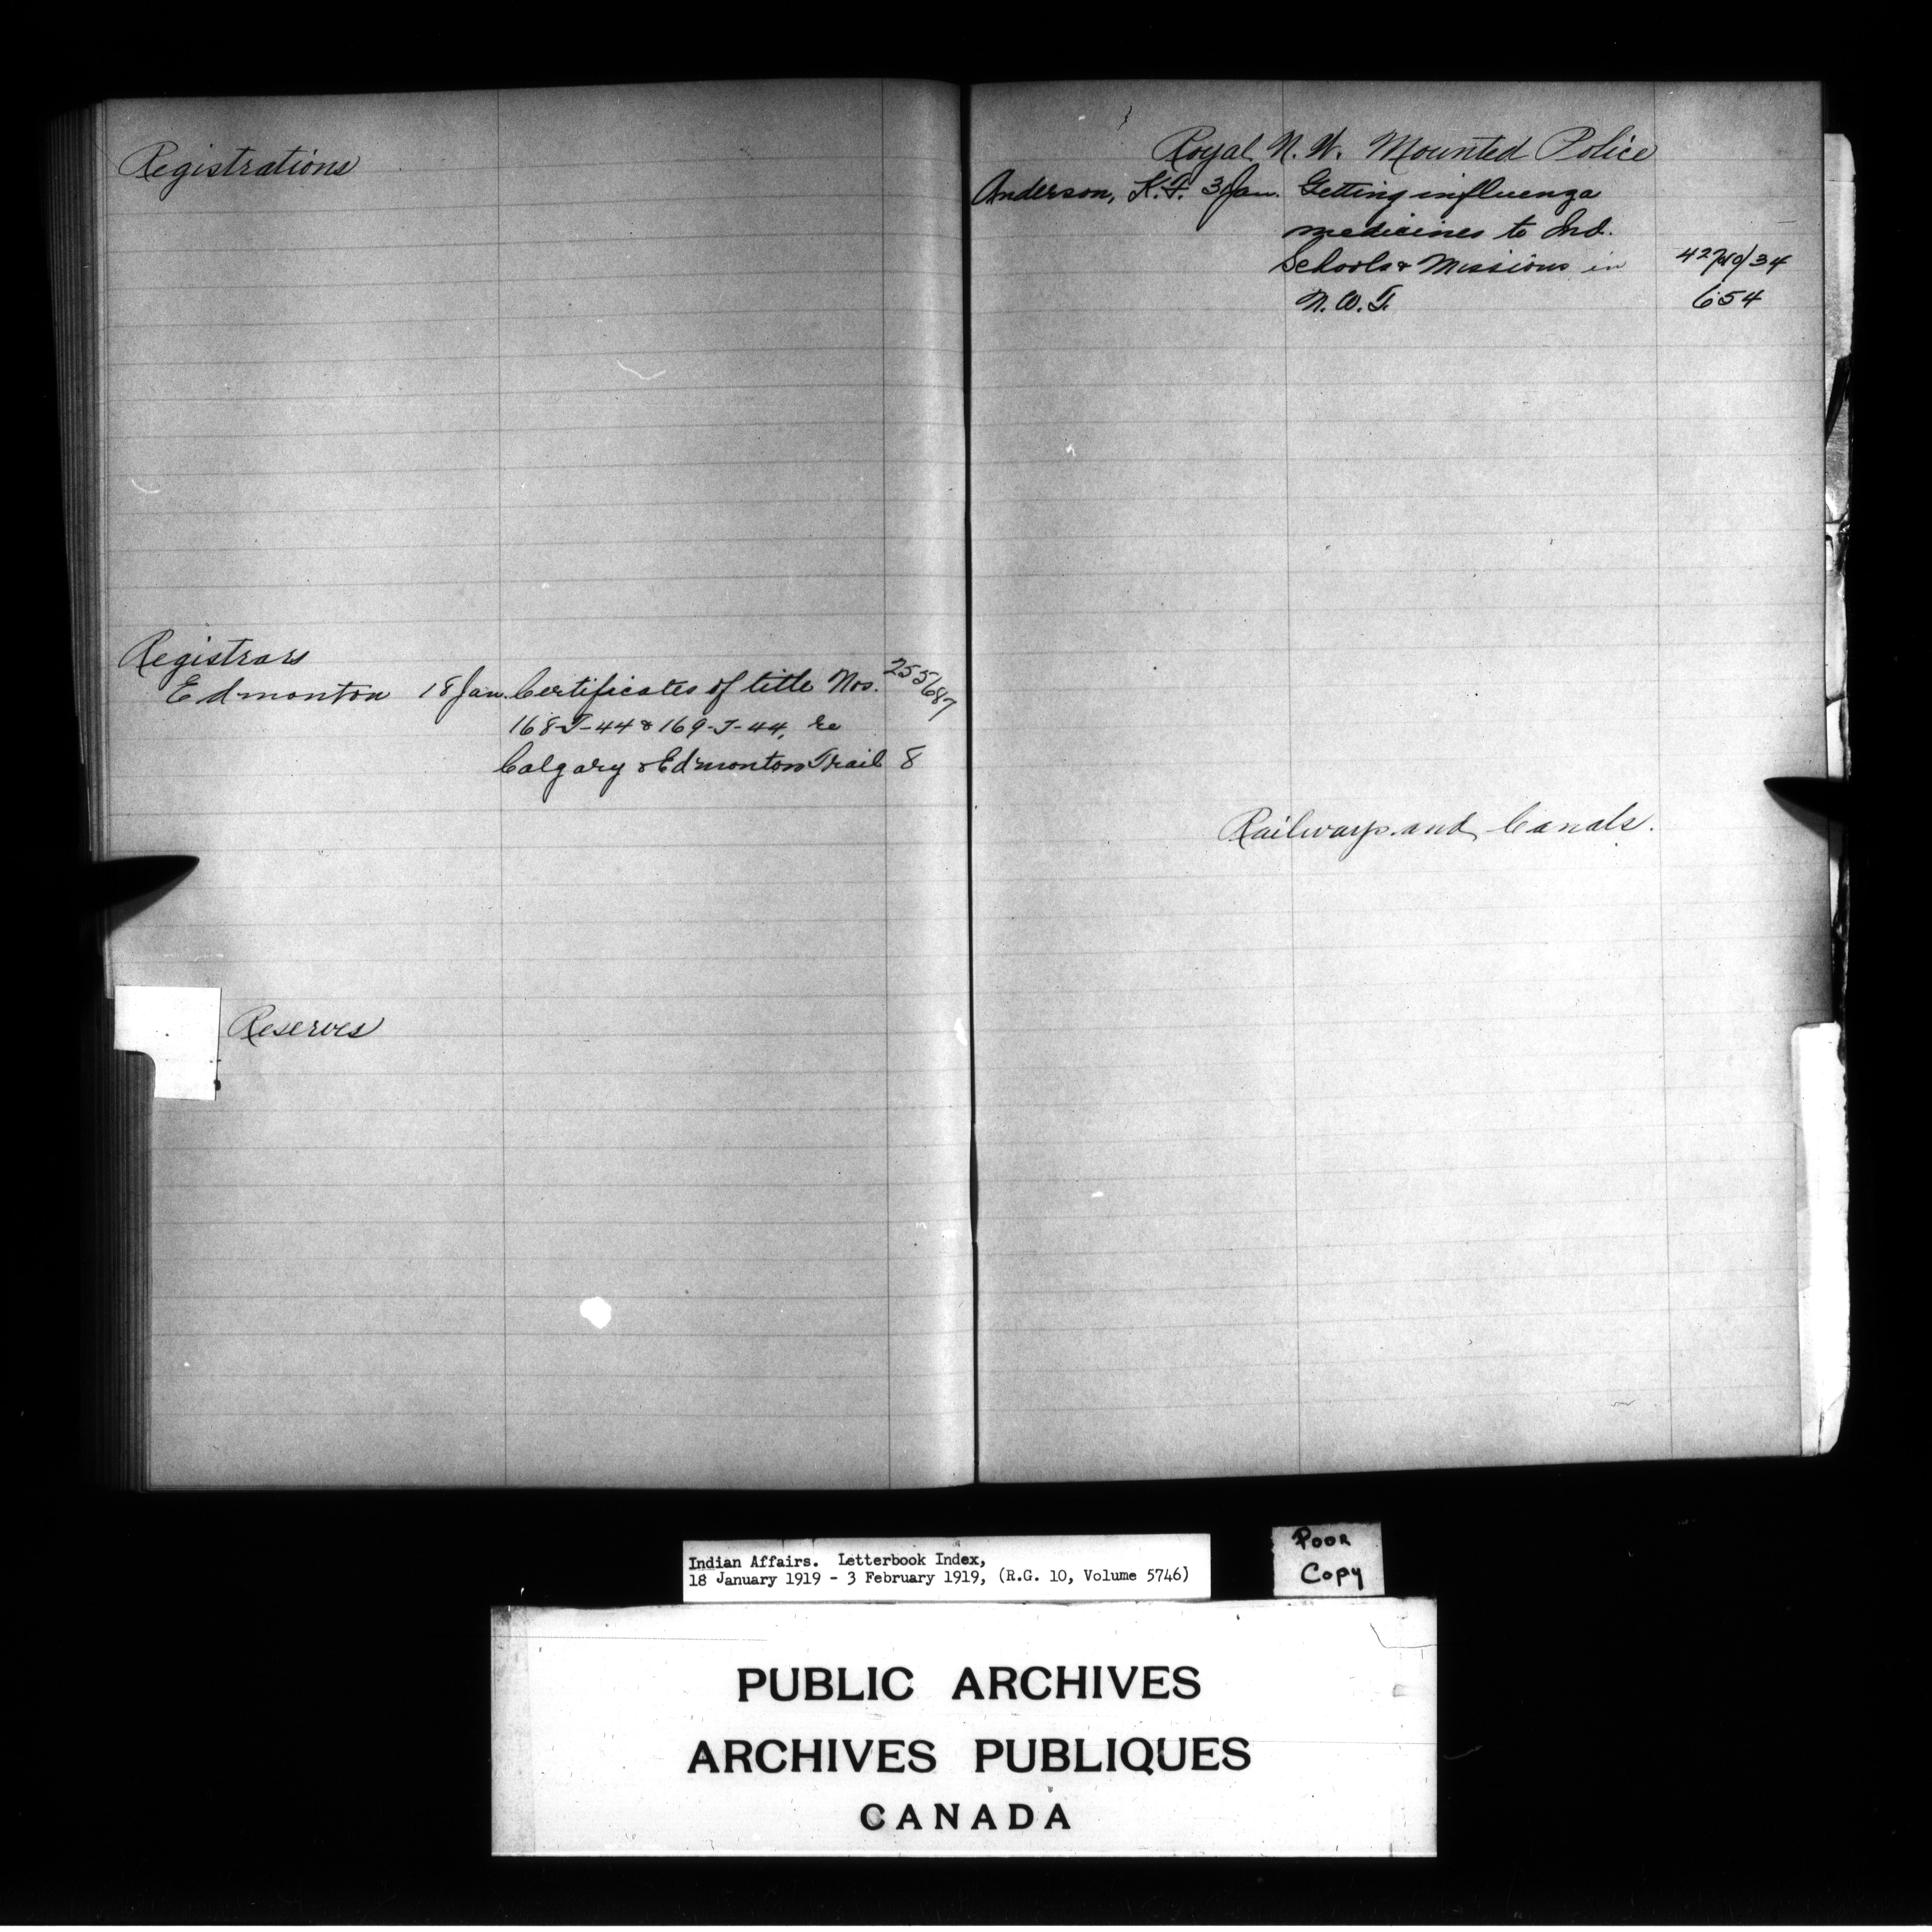 Registrations
Registrars
Edmonton 18 Jan. Certificates of title Nos. 255687
168-T-44 & 169-T-44, re
Calgary & Edmonton Trail 8
Reserves
Royal N. W. Mounted Police
Anderson, K.F. 3 Jan. Getting influenza
medicines to Ind.
Schools & Missions in
N.W.T. 654
Railways and Canals.
Indian Affairs. Letterbook Index,
18 January 1919 - 3 February 1919, (R.G. 10, Volume 5746)
Poor
Copy
PUBLIC ARCHIVES
ARCHIVES PUBLIQUES
CANADA